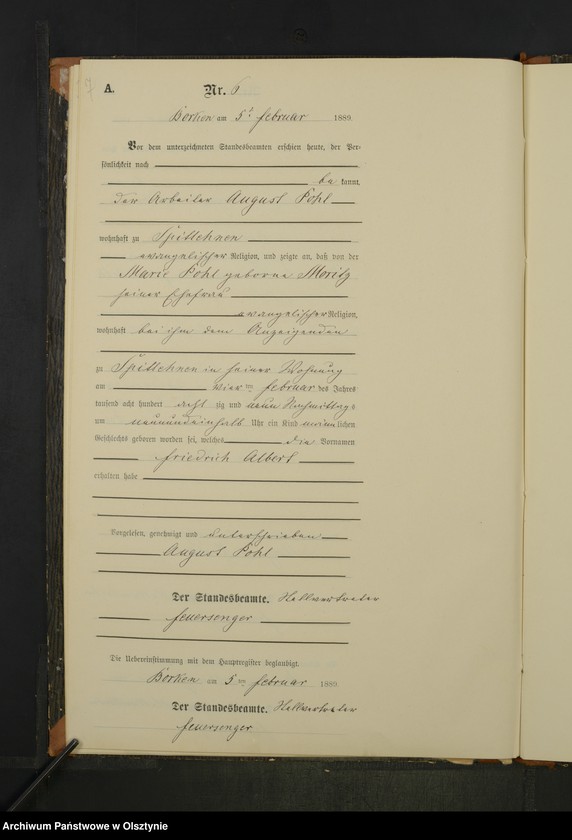 A.
Nr. 6
Borken am 5ten Februar 1889.
Vor dem unterzeichneten Standesbeamten erschien heute, der Per-
sönlichkeit nach
be kannt,
der Arbeiter August Pohl
wohnhaft zu Spittehnen
evangelischer Religion, und zeigte an, daß von der
Marie Pohl geborne Moritz
seiner Ehefrau
evangelischer Religion,
wohnhaft bei ihm dem Anzeigenden
zu Spittehnen in seiner Wohnung
am vier ten Februar des Jahres
tausend acht hundert acht zig und neun Nachmittags
um neunundeinhalb Uhr ein Kind männlichen
Geschlechts geboren worden sei, welches die Vornamen
Friedrich Albert
erhalten habe
Vorgelesen, genehmigt und unterschrieben
August Pohl
Der Standesbeamte. Stellvertreter
Feuersenger
Die Uebereinstimmung mit dem Hauptregister beglaubigt.
Borken am 5ten Februar 1889.
Der Standesbeamte. Stellvertreter
Feuersenger
Archiwum Państwowe w Olsztynie